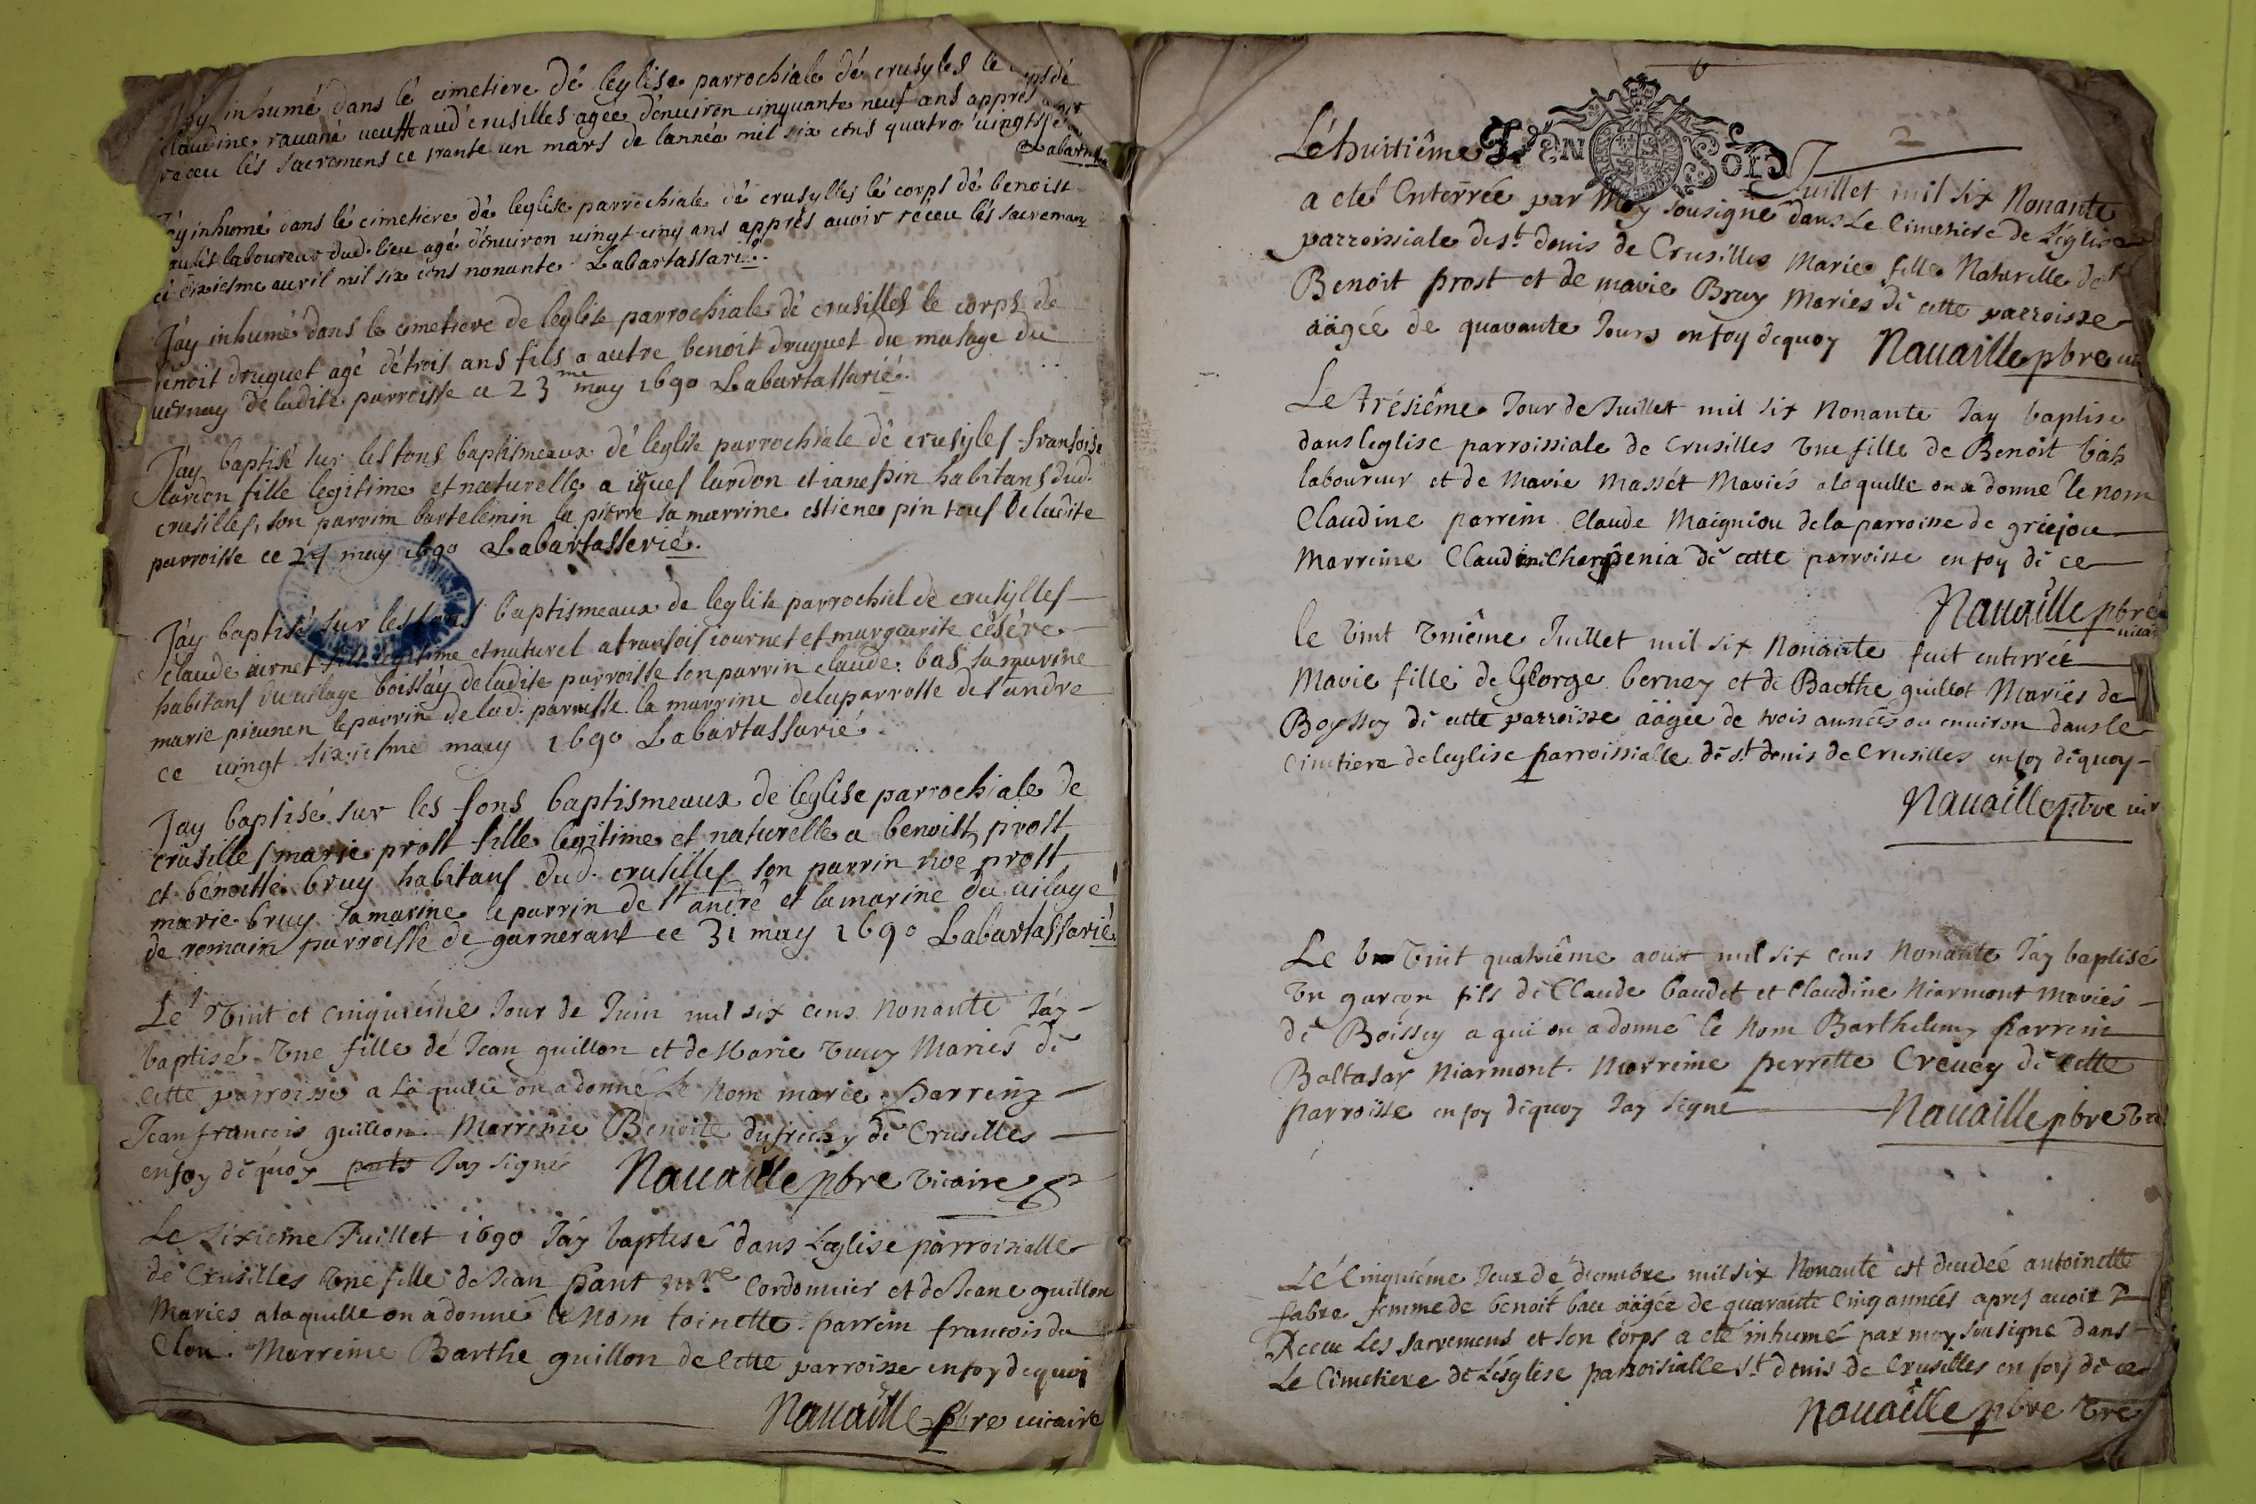 Jay inhumé dans lé cimetiere dé leglise parrochiale dé crusyles le corps dé
claudine rauané ueufue aud crusilles agee dénuiron cinquante neuf ans appres auoir
receu lés sacremens ce trante un mars de lannéa mil six cens quatre uingts
Labartas
Jáy inhumé dans lé cimetiere dé leglise parrochiale dé crusylles lé corps dé benoist
laboureur dud. lieu agé dénuiron uingt cinq ans apprés auoir receu lés sacreman
cé dixiesme auril mil six cens nonante Labartassarié.
Jáy inhumé dans le cimetiere de léglise parrochiale dé crusilles le corps de
benoit druguet agé détrois ans fils a autre benoit druguet du
uernay de ladite parroisse ce 23me may 1690 Labartassarié.
Jáy baptisé sur les fons baptismeaux dé leglise parrochiale dé crusyles fransoise
lardon fille legitime et naturelle a iques lardon et iane pin habitans dud.
crusilles, son parrim bartelemin la pierre sa marrine estiene pin tous de ladite
parroisse ce 24 may 1690 Labartasserié.
Jáy baptisé sur les fons baptismeaux de leglise parrochiel de crusylles
claude iurnet fils legitime et naturel a fransois iournet et marguerite césére
habitans du uilage boissáy de ladite parroisse son parrin claude bas sa marine
marie picunen le parrin de lad. parroisse la marrine de la parroisse de st andre
ce uingt sixiesme may 1690 Labartassarié.
Jay baptisé sur les fons baptismeaux de léglise parrochiale de
crusilles marie prost fille legitime et naturelle a benoist prost
et bénoitte bruy habitans dud. crusilles son parrin noe prost
marie bruy sa marine le parrin de st andré et la marine du uilage
de romain parroisse de garnerant ce 31 may 1690 Labartassarié
Le Vint et cinquiéme Jour de Juin mil six cens nonante Jáy
baptisé Vne fille dé Jean guillon et de Marie Bruy Mariés dé
cette parroisse a laquelle on a donné le nom marie. parrein
Jean francois guillon. Marreine Benoite dufrechy dé Crusilles
en foy dé quoy Jay signé Nauaille pbre vicaire
Le sixiême Juillet 1690 Jáy baptisé dans l'eglise parroissialle
dé Crusilles Vne fille de Jean pant mre Cordonnier et de Jeane guillon
Mariés a laquelle on a donné le nom toinette. parrein francois du
Clou. Marreine Barthe guillon de cette parroisse en foy de quoi
Nauaille pbre uicaire
2
Lé huitiême Juillet mil six Nonante
GEN SOLS
a eté Enterrée par Moy sousigné dans Le Cimetiere de L'églisse
parroissiale de st denis de Crusilles Marie fille Naturelle de
Benoit prost et de marie Bruy Mariés dé cette parroisse
aägéé de quarante Jours en foy dequoy Nauaille pbre
Le trésiême Jour de Juillet mil six nonante Jay baptise
dans l'eglise parroissiale de Crusilles Vne fille de Benoit bas
laboureur et de Marie Massét Mariés a laquelle on a donné le nom
Claudine parrein Claude Maigniou de la parroisse de griejou
Marreine Claudine Charpenia dé cette parroisse en foy dé ce
Nauaille pbre
uicai
le Vint Vniême Juillet mil six Nonante fuit enterrée
Marie fille de George berney et dé Barthe guillot Mariés de
Boyssey dé cette parroisse aägée de trois années ou enuiron dans le
Cimetiere de leglise parroissialle de st denis de Crusilles en foy dé quoy
Nauaille pbre uir
Le Vint quatriême aoust mil six cens Nonante Jáy baptisé
Vn garçon fils dé Claude baudet et Claudine Niarmont Mariés
dé Boissey a qui on a donné le nom Barthelemy parrein
Baltasar Niarmont. Marreine perrette Creuey dé cette
parroisse en foy dé quoy Jay signé Nauaille pbre
Lé Cinquiéme Jour dé décembre mil six Nonante est décédée antoinette
fabre femme de benoit bau aägée de quarante Cinq années apres auoir
Receu Les sacremens et son corps a eté inhumé par moy sousigné dans
Le Cimetiere de L'ésglise parroissialle st denis de Crusilles en foy dé ce
Nauaille pbre Vre